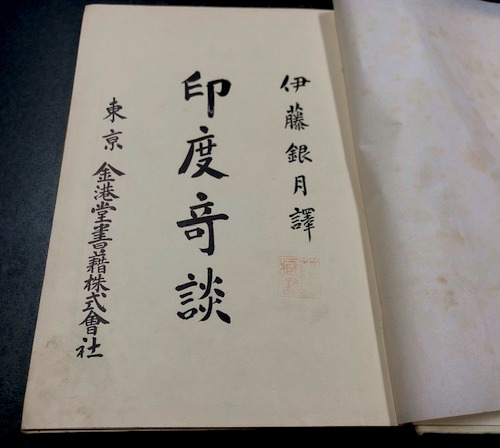 伊藤銀月譯
印度竒談
東京 金港堂書籍株式會社